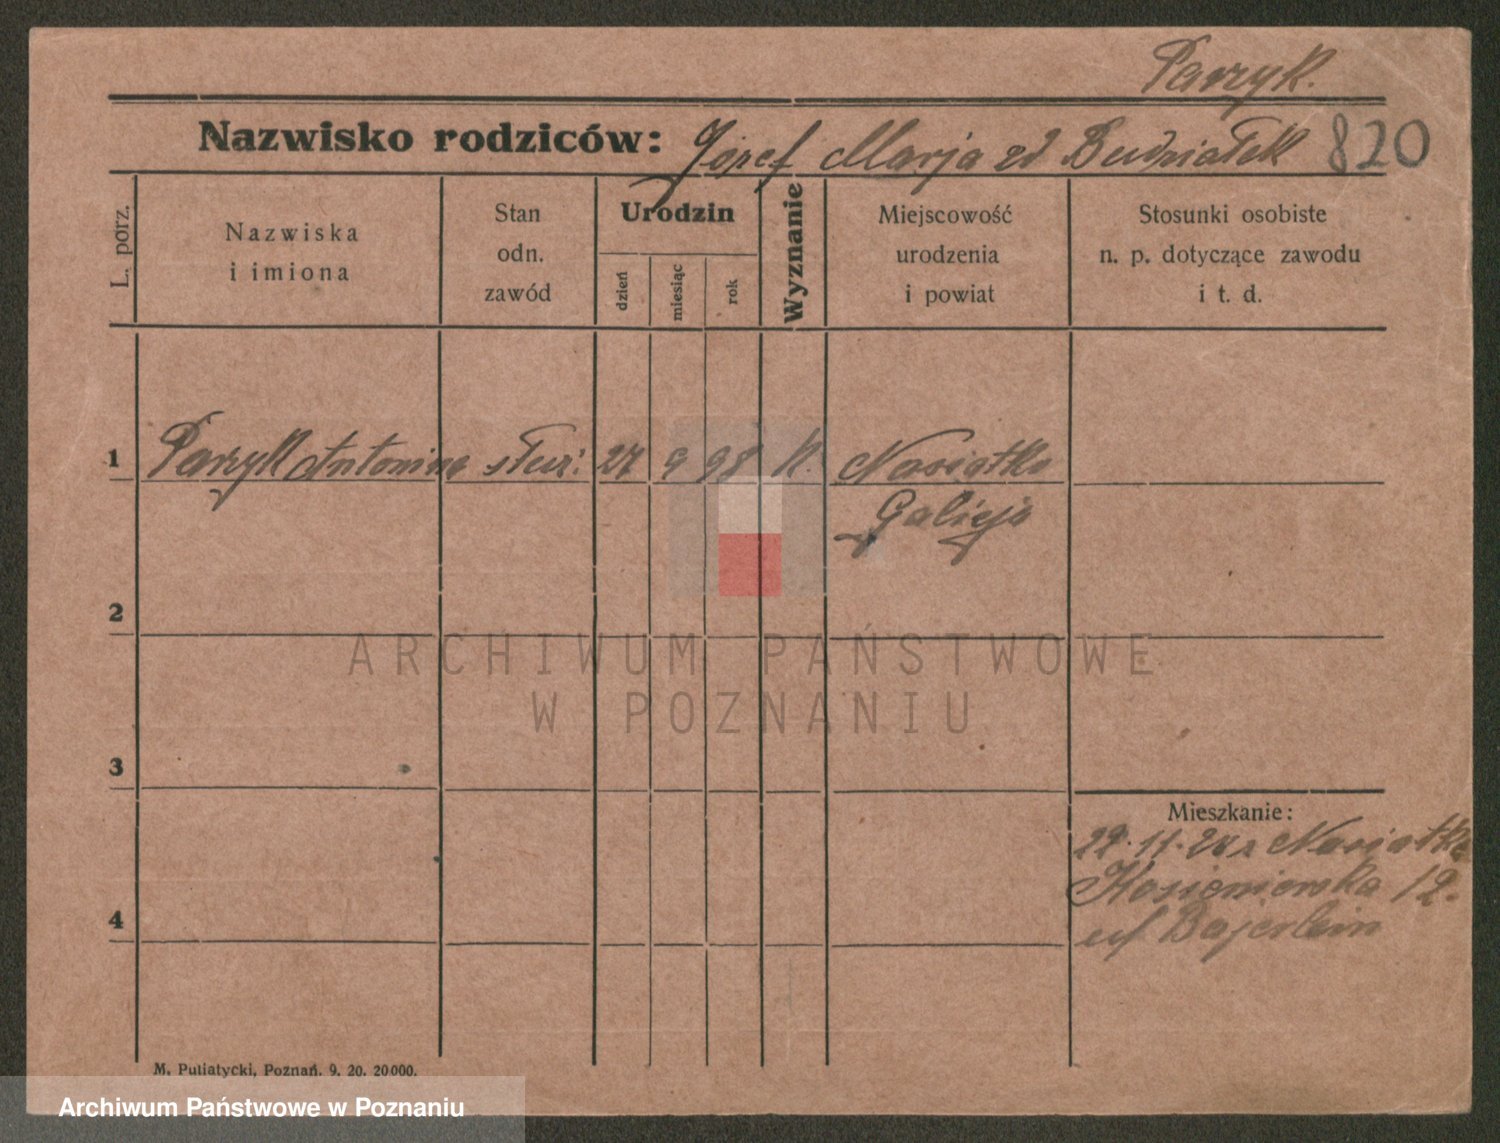 Parzyk.
Nazwisko rodziców: Józef Marja zd Budziałek 820
L. porz.
Nazwiska
i imiona
Stan
odn.
zawód
Urodzin
dzień
miesiąc
rok
Wyznanie
Miejscowość
urodzenia
i powiat
Stosunki osobiste
n. p. dotyczące zawodu
i t. d.
1 Parzyk Antonina służ. 27 9 98 k. Nasiatka
Galicja
2
ARCHIWUM PAŃSTWOWE
W POZNANIU
3
Mieszkanie:
11. Nasiatka
12.
4
Bajerlein
M. Putiatycki, Poznań. 9. 20. 20000.
Archiwum Państwowe w Poznaniu